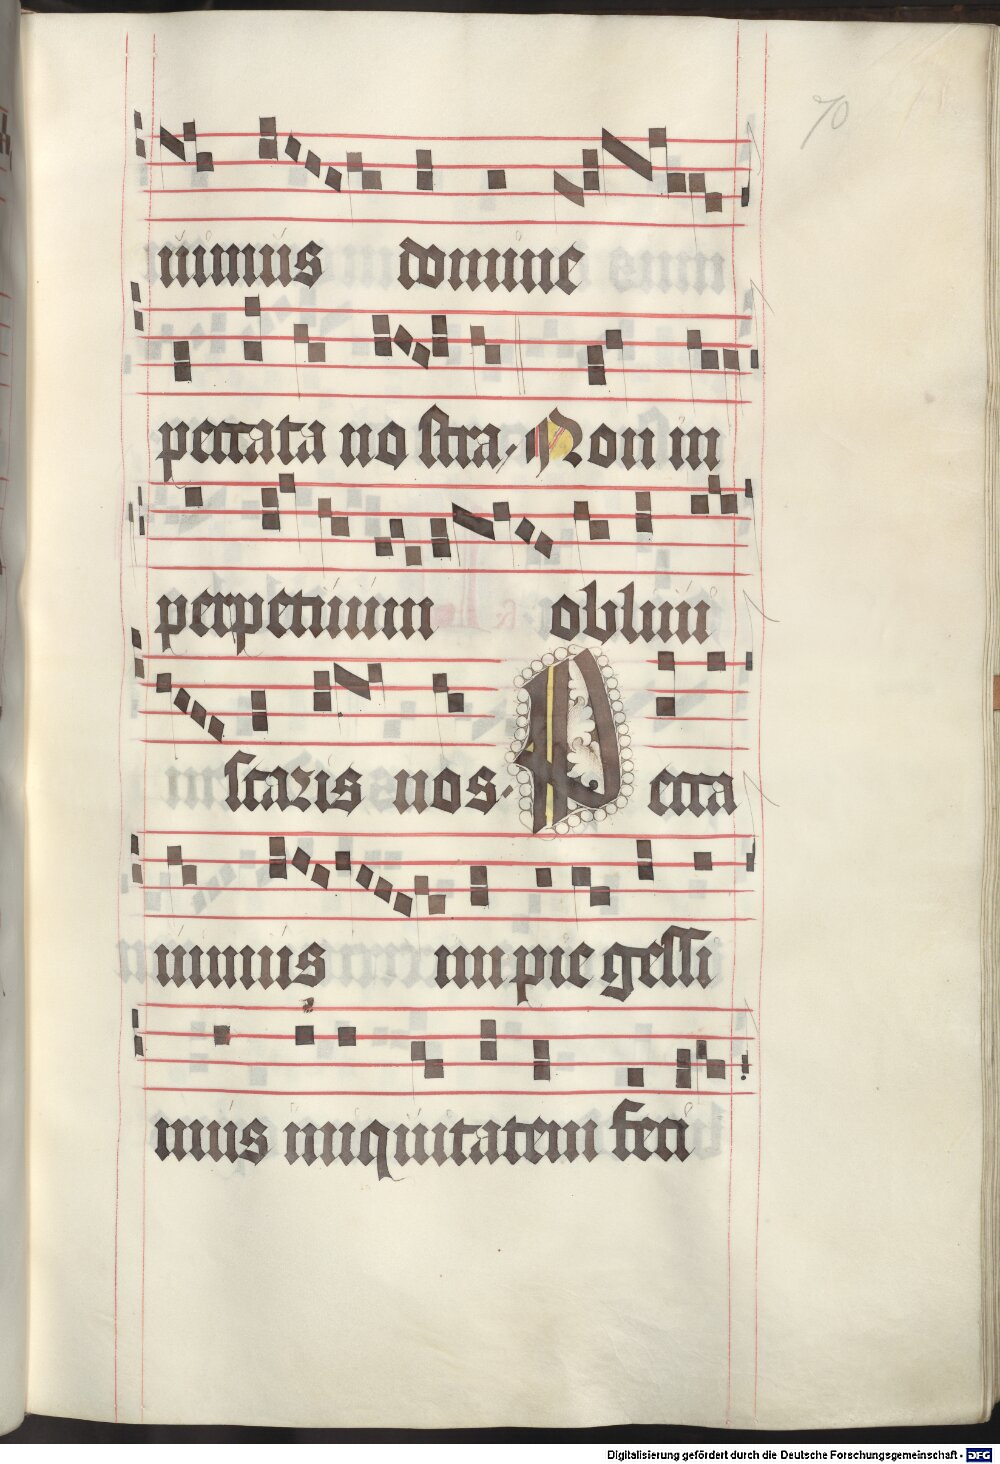 70
nimus domine
peccata nostra. Non in
perpetuum oblivi
scaris nos. Pecca
vimus impie gessi
mus iniquitatem feci
Digitalisierung gefördert durch die Deutsche Forschungsgemeinschaft - DFG